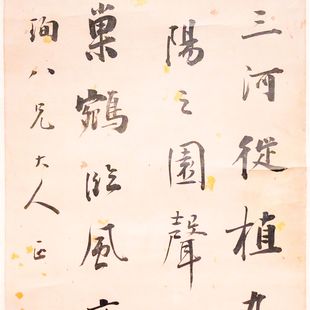 三河徙植九
陽之園聲
巢鵷臨風
珣八兄大人正